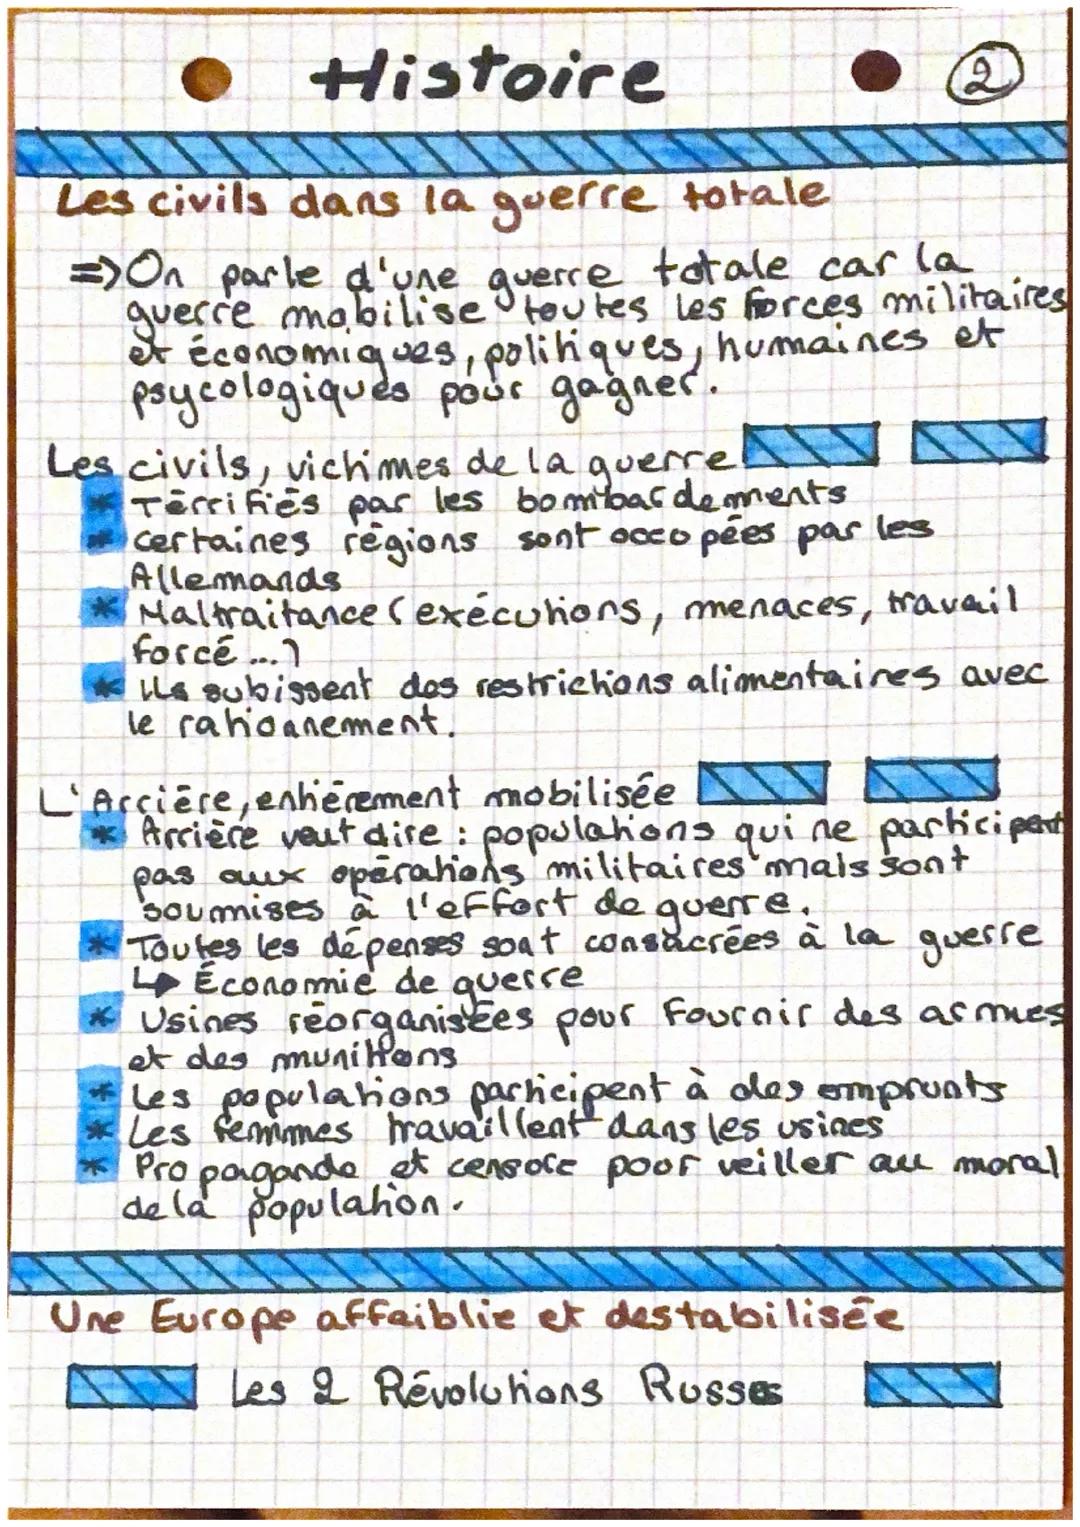 Histoire
2
Les civils dans la guerre totale
=> On parle d'une guerre totale car la
guerre mobilise toutes les forces militaires
et économiques, politiques, humaines et
psycologiques pour gagner.
Les civils, victimes de la guerre
* Térrifiés par les bombardements
* certaines régions sont occopées par les
Allemands
* Maltraitance (exécutions, menaces, travail
forcé ...)
* Ils subissent des restrictions alimentaires avec
le rationnement.
L'Arrière, entièrement mobilisée
* Arrière veut dire : populations qui ne participent
pas aux opérations militaires mais sont
soumises à l'effort de guerre.
* Toutes les dépenses sont consacrées à la guerre
↳ Économie de guerre
* Usines réorganisées pour fournir des armes
et des munitions
* Les populations participent à des emprunts
* Les femmes travaillent dans les usines
* Propagande et censure pour veiller au moral
de la population.
Une Europe affaiblie et destabilisée
Les 2 Révolutions Russes